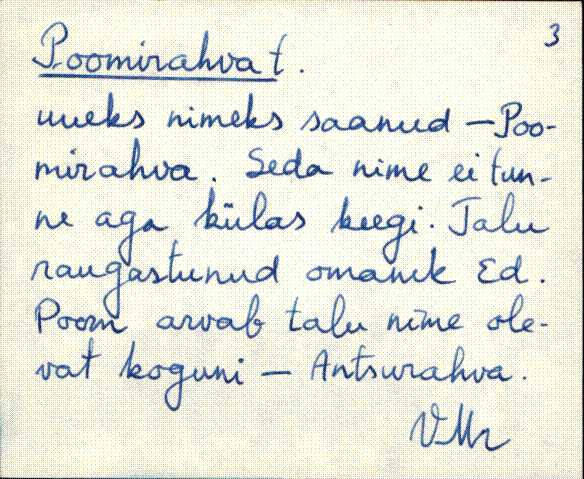 3
Poomirahva t.
uueks nimeks saanud — Poo-
mirahva. Seda nime ei tun-
ne aga külas keegi. Talu
raugastunud omanik Ed.
Poom arvab talu nime ole-
vat koguni — Antsurahva.